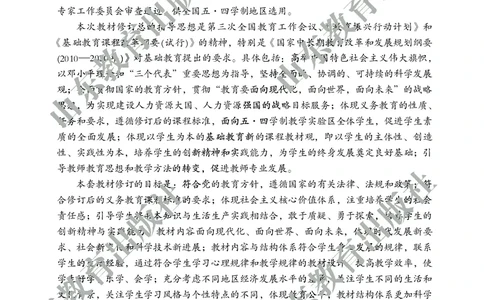 专家工作委员会审查通过，供全国五·四学制地区选用。
本次教材修订总的指导思想是第三次全国教育工作会议、《振兴行动计划》和
《基础教育课程 要(试行)》的精神，特别是《国家中长期教育改革和发展规划纲要
(2010—2020 )》对基础教育提出的要求。具体包括：高举中国特色社会主义伟大旗帜，
以邓小平理论和“三个代表”重要思想为指导，坚持全面、协调的、可持续的科学发展
观；贯彻国家的教育方针，贯彻“教育要面向现代化，面向世界，面向未来”的战略
思想，为实现建设人力资源大国、人力资源强国的战略目标服务；体现义务教育的性质、
任务和要求，遵循修订后的课程标准，面向五·四学制教学实验区全体学生，促进学生素
质的全面发展；体现以学生为本的基础教育新的课程教材观，即以学生的主体性、创造
性、实践性为本，培养学生的创新精神和实践能力，为学生的终身发展奠定良好基础；引
导教师教育思想和教学方法的转变，促进教师专业发展。
本套教材修订的目是：符合党的教育方针，遵循国家的有关法律、法规和政策；符
合修订后的义务教育课程标准的要求；体现社会主义核心价值体系，注重培养学生的社会
责任感；引导学生将书本知识与生活生产实践相结合，敢于质疑、勇于探索，培养学生的
创新精神与实践能力；教材内容面向现代化、面向世界、面向未来，体现时代发展新要
求、社会新变化和科学技术新进展；教材内容与结构体系符合学生身心发展的规律，联系
学生的生活经验，通过符合学生学习心理规律和教学规律的教材设计，提高教学效率，使
学生好学、乐学、会学；充分考虑不同地区经济发展水平的差异，关注学生不同的生活和
文化背景，关注学生学习风格与个性特点的不同，体现教育公平；教材结构体系为和科学
山东教育出版社